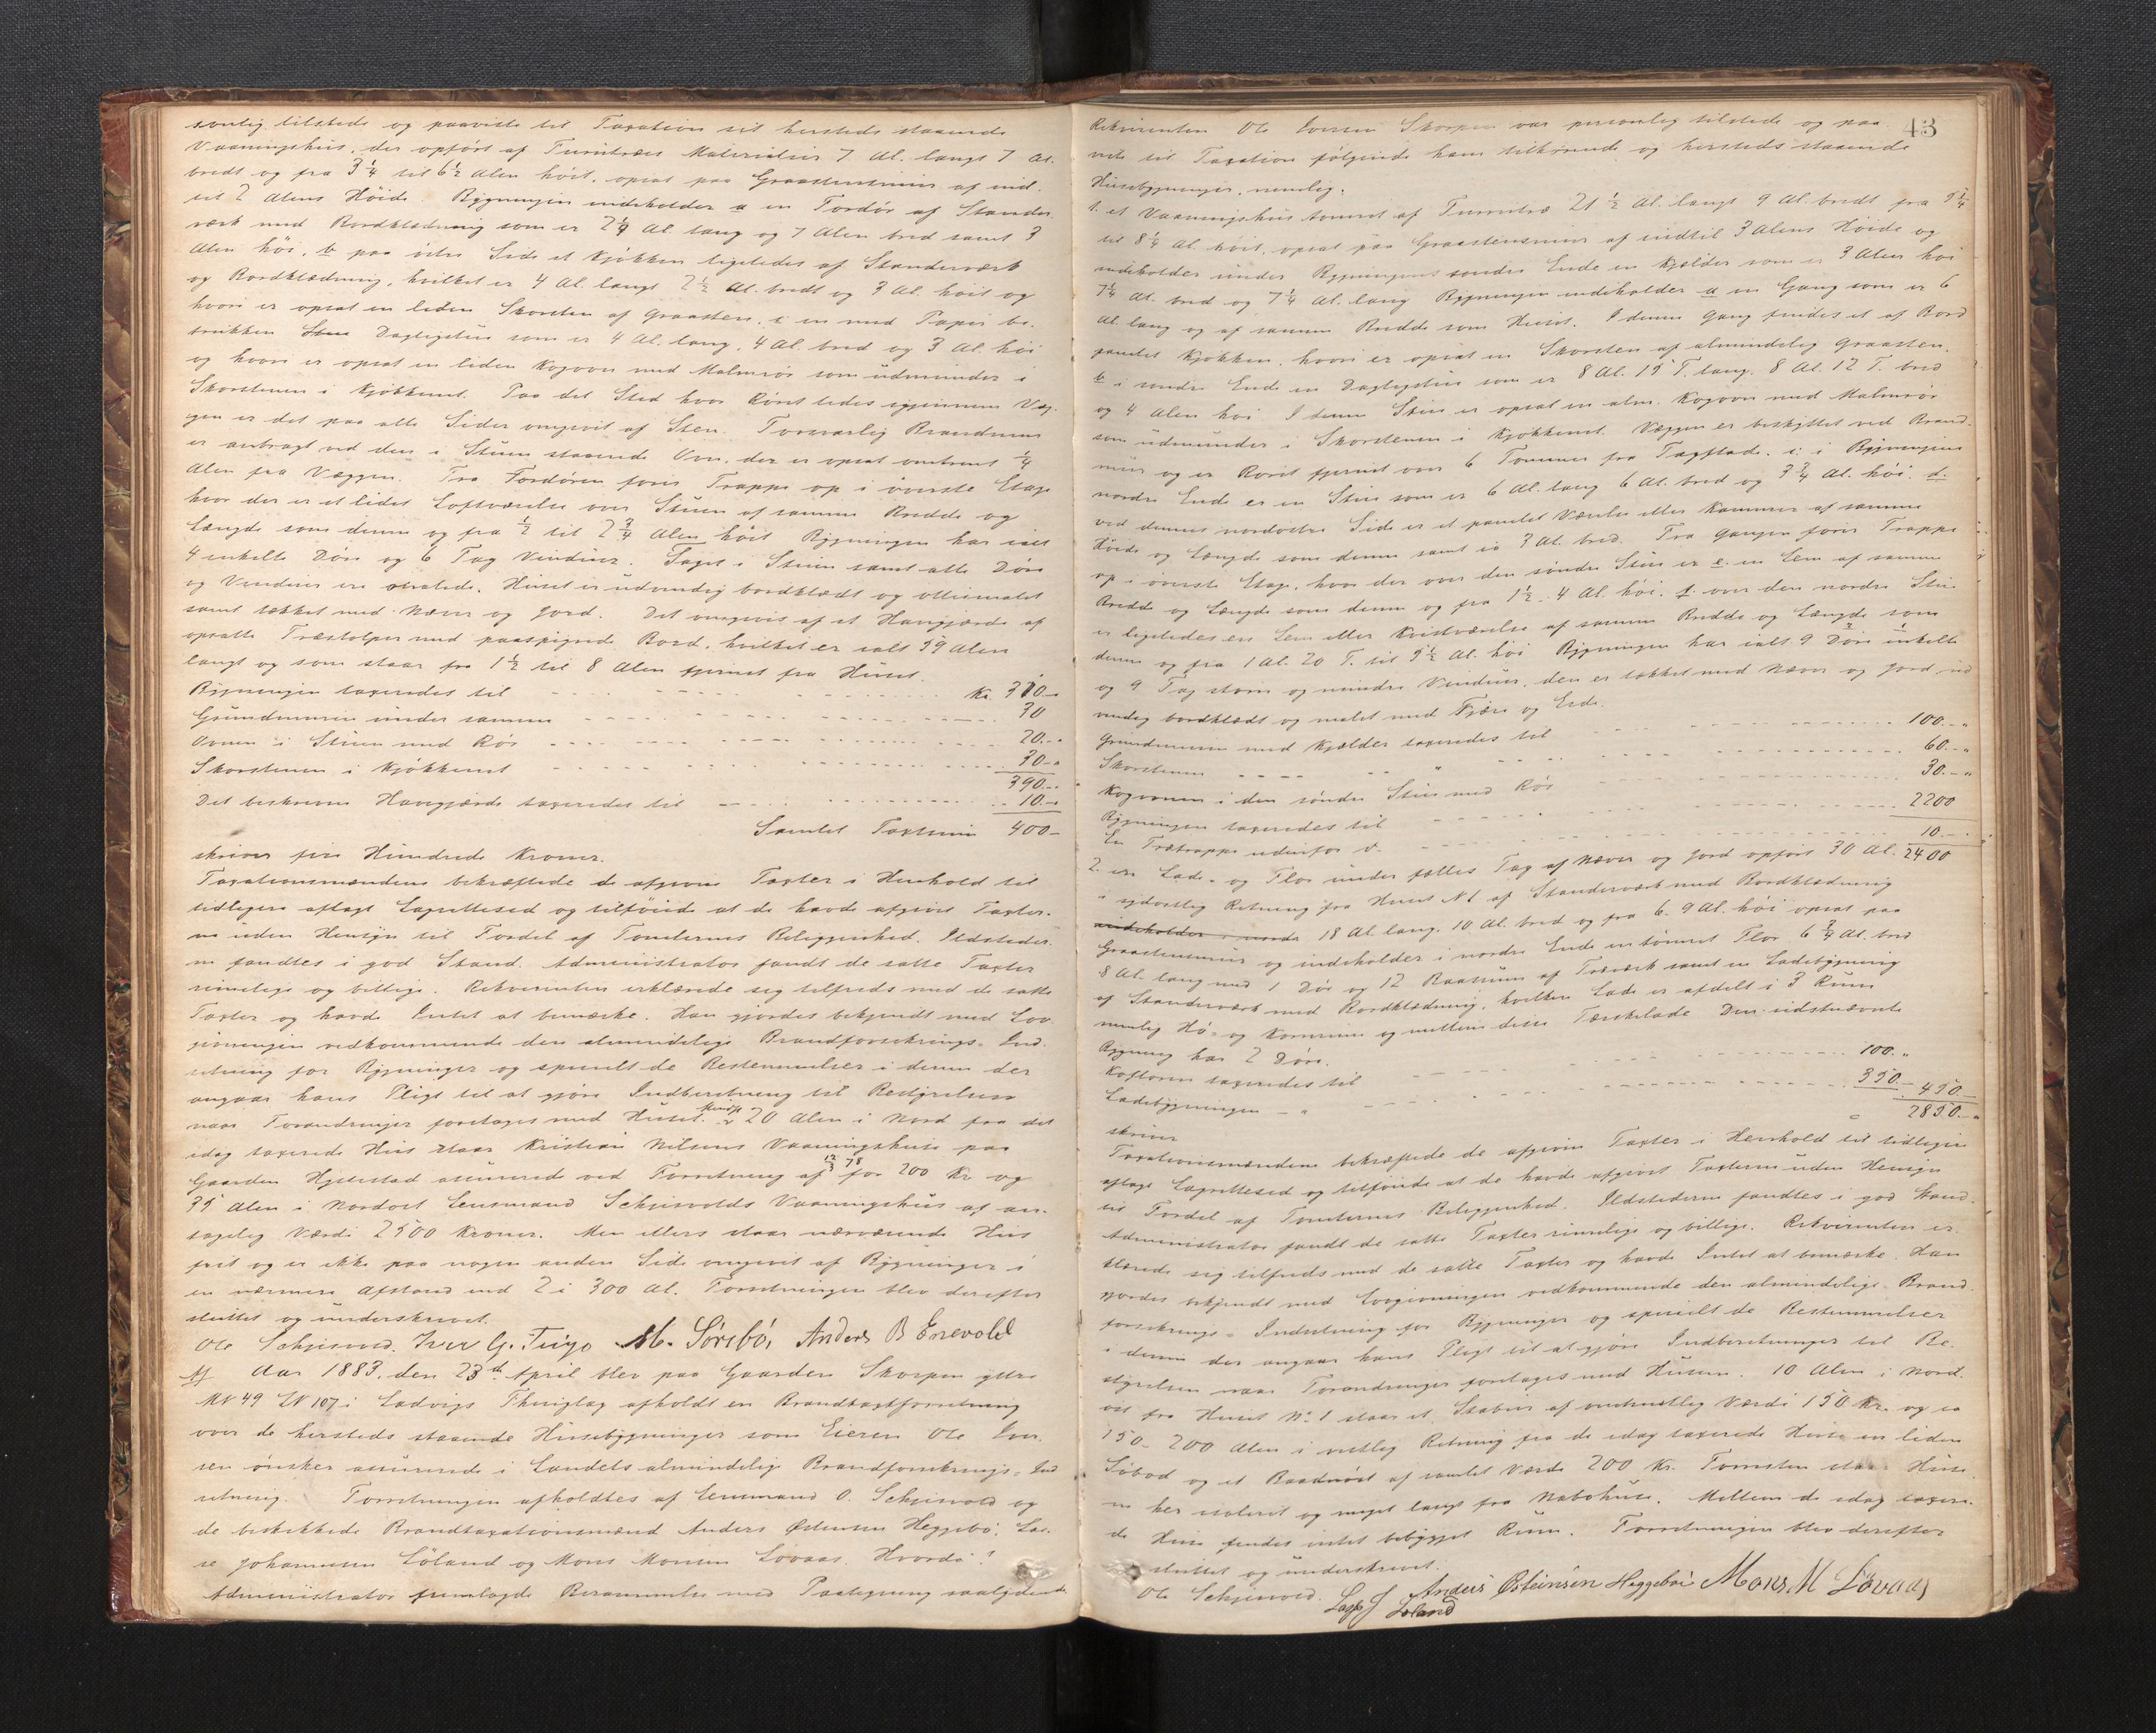 sonlig tilstede og paaviste til Taxation sit hersteds staaende
Vaaningshus, der opført af Furutræes Materialier 7 Al. langt 7 Al.
bredt og fra 3 1/4 til 6 1/2 Alen høit, opsat paa Graastensmur af ind-
til 2 Alens Høide. Bygningen indeholder a en Fordør af Stander-
værk med Bordklædning som er 2 1/4 Al. lang og 7 Alen bred samt 3
Alen høi, b paa Side et Kjøkken ligeledes af Standerværk
og Bordklædning, hvilket er 4 Al. langt 2 1/2 Al. bredt og 3 Al. høit og
hvori er opsat en liden Skorsten af Graasten, c en med Papir be-
trukken Dagligstue som er 4 Al. lang, 4 Al. bred og 3 Al. høi
og hvori er opsat en liden Kogovn med Malmrør som udmunder i
Skorstenen i Kjøkkenet. Paa det Sted hvor Røret ledes igjennem Væg-
gen er det paa alle Sider omgivet af Sten. Forsvarlig Brandmur
er anbragt ved den i Stuen staaende Ovn, der er opsat omtrent 1/4
Alen fra Væggen. Fra Fordøren fører Trappe op i øverste Etage
hvor der er et lidet Loftværelse over Stuen af samme Bredde og
Længde som denne og fra 1/2 til 2 3/4 Alen høit. Bygningen har ialt
4 enkelte Døre og 6 Fag Vinduer. Taget i Stuen samt alle Døre
og Vinduer ere malede. Huset er udvendig bordklædt og oliemalet
samt tækket med Næver og Jord. Det omgives af et Havegjærde af
opsatte Træstolper med paaspigrede Bord, hvilket er ialt 39 Alen
langt og som staar fra 1 1/2 til 8 Alen fjernet fra Huset.
Bygningen taxeredes til Kr. 310 -
Grundmuren under samme 30
Ovnen i Stuen med Rør 20 -
Skorstenen i Kjøkkenet 30 -
390 -
Det beskrevne Havegjærde taxeredes til 10 -
Samlet Taxtsum 400 -
skriver fire Hundrede Kroner.
Taxationsmændene bekræftede de afgivne Taxter i Henhold til
tidligere aflagt Lagrettesed og tilføiede at de havde afgivet Taxter-
ne uden Hensyn til Fordel af Tomternes Beliggenhed. Ildsteder-
ne fandtes i god Stand. Administrator fandt de satte Taxter
rimelige og billige. Rekvirenten erklærede sig tilfreds med de satte
Taxter og havde Intet at bemærke. Han gjordes bekjendt med Lov-
givningen vedkommende den almindelige Brandforsikrings-Ind-
retning for Bygninger og specielt de Bestemmelser i denne der
angaar hans Pligt til at gjøre Indberetning til Bestyrelsen
naar Forandringer foretages med Huset. 20 Alen i Nord fra det
idag taxerede Hus staar Kristian Nilsens Vaaningshus paa
Gaarden Hjelestad assurerede ved Forretning af 12/3 78 for 200 Kr og
35 Alen i Nordost Lensmand Schjervolds Vaaningshus af an-
tagelig Værdi 2500 Kroner. Men ellers staar nærværende Hus
frit og er ikke paa nogen anden Side omgivet af Bygninger i
en nærmere Afstand end 2 à 300 Al. Forretningen blev derefter
sluttet og underskrevet.
Ole Schjervold. Iver G. M. Sørebø, Anders B Enevold
Aar 1883, den 23de April blev paa Gaarden Skorpen ytre
MN 49 LN 107 i Ladvigs Thinglag afholdt en Brandtaxtforretning
over de hersteds staaende Husebygninger som Eieren Ole Iver-
sen ønsker assurerede i Landets almindelige Brandforsikrings-Ind
retning. Forretningen afholdtes af Lensmand O. Schjervold og
de beskikkede Brandtaxationsmænd Anders Østensen Heggebø, Las-
se Johannesen Løland og Mons Monsen Løvaas. Hvorda!
Administrator fremlagde Berammelse med Paategning saalydende

43
Rekvirenten Ole Iversen Skorpen var personlig tilstede og paa-
viste til Taxation følgende ham tilhørende og hersteds staaende
Husebygninger, nemlig:
1. et Vaaningshus tømret af Furutræ 21 1/2 Al. langt 9 Al. bredt fra 5 1/4
til 8 1/4 Al. høit, opsat paa Graastensmur af indtil 3 Alens Høide og
indeholder under Bygningens søndre Ende en Kjelder som er 3 Alen høi
7 1/4 Al. bred og 7 1/4 Al. lang. Bygningen indeholder a en Gang som er 6
Al. lang og af samme Bredde som Huset. I denne Gang findes et af Bord
panelet Kjøkken, hvori er opsat en Skorsten af almindelig Graasten.
b i søndre Ende en Dagligstue som er 8 Al. 15 T. lang, 8 Al. 12 T. bred
og 4 Alen høi. I denne Stue er opsat en alm. Kogovn med Malmrør
som udmunder i Skorstenen i Kjøkkenet. Væggen er beskyttet ved Brand-
mur og er Røret fjernet over 6 Tommer fra Tagflade. c i Bygningens
nordre Ende er en Stue som er 6 Al. lang 6 Al. bred og 3 3/4 Al. høi. d.
ved dennes nordostre Side er et panelet Værelse eller Kammer af samme
Høide og Længde som denne samt ca 3 Al. bred. Fra Gangen fører Trappe
op i øverste Etage, hvor der over den søndre Stue er e. en Lem af samme
Bredde og Længde som denne og fra 1 1/2 - 4 Al. høi. f. over den nordre Stue
er ligeledes en Lem eller Kvistværelse af samme Bredde og Længde som
denne og fra 1 Al. 20 T. til 3 1/2 Al. høi. Bygningen har ialt 9 Døre enkelte
og 9 Fag større og mindre Vinduer, den er tækket med Næver og Jord, ud-
vendig bordklædt og malet med Tjære og Erde.
Grundmuren med Kjælder taxeredes til 100. - "
Skorstenen 60. - "
Kogovnen i den søndre Stue med Rør 30. - "
Bygningen taxeredes til 2200
En Trætrappe udenfor d. 10. -
2400
2. en Lade- og Flor under fælles Tag af Næver og Jord opført 30 Al.
i sydostlig Retning fra Huset N 1 af Standerværk med Bordklædning
18 Al. lang, 10 Al. bred og fra 6 - 9 Al. høi opsat paa
Graastensmur og indeholder i nordre Ende en tømret Flor 6 3/4 Al. bred
8 Al. lang med 1 Dør og 12 Baasrum af Træværk samt en Ladebygning
af Standerværk med Bordklædning, hvilken Lade er afdelt i 3 Rum
nemlig Hø- og Kornrum og mellem disse Tærskelade. Den sidstnævnte
Bygning har 2 Døre.
Kofloren taxeredes til 100. "
Ladebygningen - " 350. - 450. -
2850. - "
skriver
Taxationsmændene bekræftede de afgivne Taxter i Henhold til tidligere
aflagt Lagrettesed og tilføiede at de havde afgivet Taxterne uden Hensyn
til Fordel af Tomternes Beliggenhed. Ildstederne fandtes i god Stand.
Administrator fandt de satte Taxter rimelige og billige. Rekvirenten er-
klærede sig tilfreds med de satte Taxter og havde Intet at bemærke. Han
gjordes bekjendt med Lovgivningen vedkommende den almindelige Brand-
forsikrings-Indretning for Bygninger og specielt de Bestemmelser
i denne der angaar hans Pligt til at gjøre Indberetninger til Be-
styrelsen naar Forandringer foretages med Husene. 10 Alen i Nord-
ost fra Huset No 1 staar et Stabur af omtrentlig Værdi 150 Kr. og ca
150 - 200 Alen i vestlig Retning fra de idag taxerede Huse en liden
Søbod og et Baadnøst af samlet Værdi 200 Kr. Forresten staar Huse-
ne her isoleret og meget langt fra Nabohuse. Mellem de idag taxere-
de Huse findes intet bebygget Rum. Forretningen blev derefter
sluttet og underskrevet.
Ole Schjervold. Anders Østensen Heggebøe Mons M Løvaas
Lasse J Løland